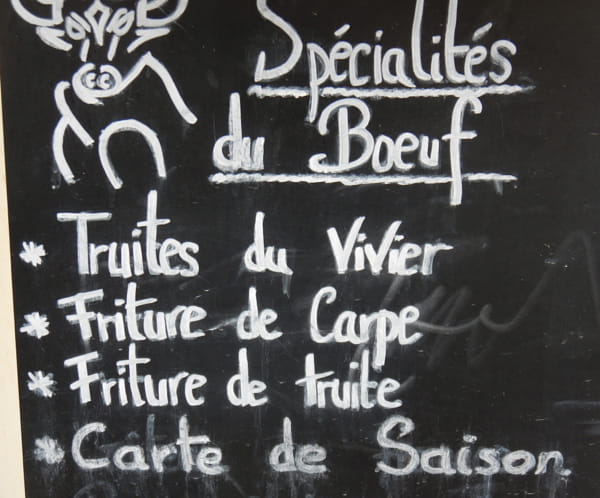 Spécialités
du Boeuf
* Truites du Vivier
* Friture de Carpe
* Friture de truite
* Carte de Saison